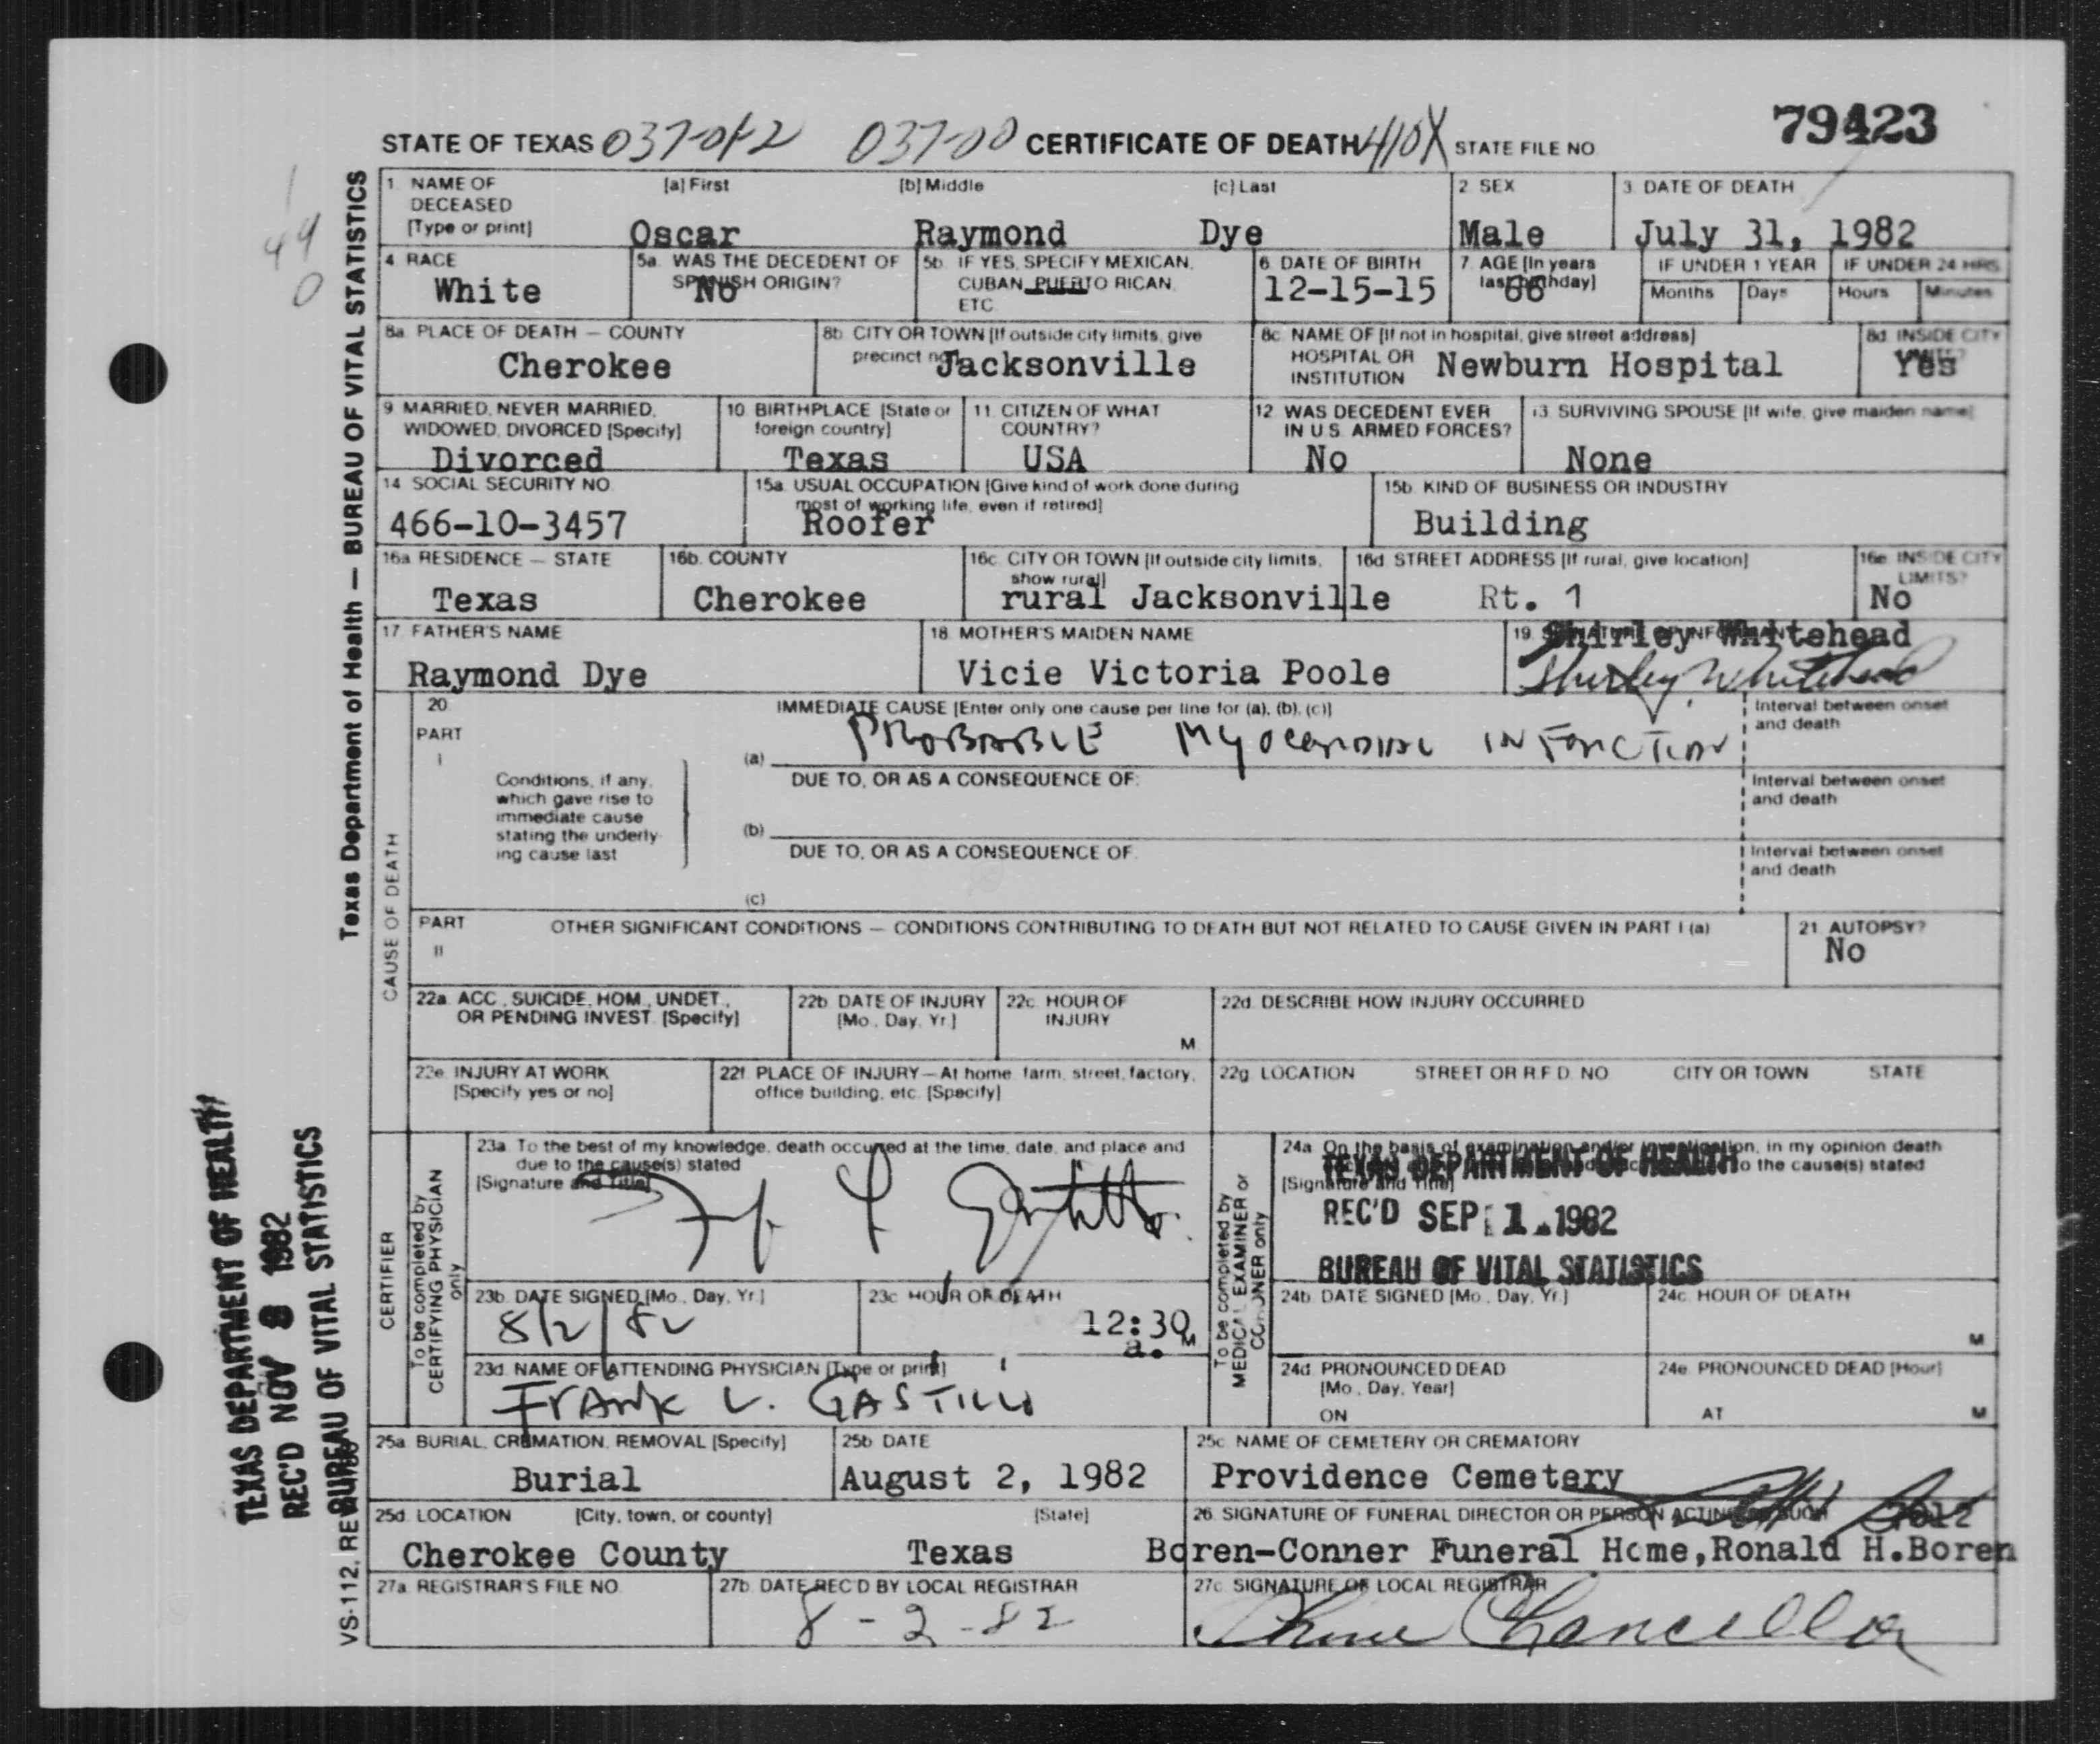 79423
STATE OF TEXAS 037-0f2 037-00 CERTIFICATE OF DEATH 410X STATE FILE NO
1. NAME OF DECEASED [Type or print] [a] First [b] Middle [c] Last 2. SEX 3. DATE OF DEATH
Oscar Raymond Dye Male July 31, 1982
4. RACE 5a. WAS THE DECEDENT OF SPANISH ORIGIN? 5b. IF YES, SPECIFY MEXICAN, CUBAN, PUERTO RICAN, ETC. 6. DATE OF BIRTH 7. AGE [In years last birthday] IF UNDER 1 YEAR IF UNDER 24 HRS.
Months Days Hours Minutes
White No 12-15-15 66
8a. PLACE OF DEATH — COUNTY 8b. CITY OR TOWN [If outside city limits, give precinct no.] 8c. NAME OF [If not in hospital, give street address] HOSPITAL OR INSTITUTION 8d. INSIDE CITY LIMITS?
Cherokee Jacksonville Newburn Hospital Yes
9. MARRIED, NEVER MARRIED, WIDOWED, DIVORCED [Specify] 10. BIRTHPLACE [State or foreign country] 11. CITIZEN OF WHAT COUNTRY? 12. WAS DECEDENT EVER IN U.S. ARMED FORCES? 13. SURVIVING SPOUSE [If wife, give maiden name]
Divorced Texas USA No None
14. SOCIAL SECURITY NO. 15a. USUAL OCCUPATION [Give kind of work done during most of working life, even if retired] 15b. KIND OF BUSINESS OR INDUSTRY
466-10-3457 Roofer Building
16a. RESIDENCE — STATE 16b. COUNTY 16c. CITY OR TOWN [If outside city limits, show rural] 16d. STREET ADDRESS [If rural, give location] 16e. INSIDE CITY LIMITS?
Texas Cherokee rural Jacksonville Rt. 1 No
17. FATHER'S NAME 18. MOTHER'S MAIDEN NAME 19. SIGNATURE OF INFORMANT
Shirley Whitehead
Raymond Dye Vicie Victoria Poole Shirley Whitehead
CAUSE OF DEATH
20. PART I IMMEDIATE CAUSE [Enter only one cause per line for (a), (b), (c)] Interval between onset and death
(a) PROBABLE MYOCARDIAL INFARCTION
Conditions, if any, which gave rise to immediate cause stating the underlying cause last
DUE TO, OR AS A CONSEQUENCE OF: Interval between onset and death
(b)
DUE TO, OR AS A CONSEQUENCE OF: Interval between onset and death
(c)
PART II OTHER SIGNIFICANT CONDITIONS — CONDITIONS CONTRIBUTING TO DEATH BUT NOT RELATED TO CAUSE GIVEN IN PART I (a) 21. AUTOPSY?
No
22a. ACC., SUICIDE, HOM., UNDET., OR PENDING INVEST. [Specify] 22b. DATE OF INJURY [Mo., Day, Yr.] 22c. HOUR OF INJURY M 22d. DESCRIBE HOW INJURY OCCURRED
22e. INJURY AT WORK [Specify yes or no] 22f. PLACE OF INJURY—At home, farm, street, factory, office building, etc. [Specify] 22g. LOCATION STREET OR R.F.D. NO. CITY OR TOWN STATE
CERTIFIER
To be completed by CERTIFYING PHYSICIAN only
23a. To the best of my knowledge, death occurred at the time, date, and place and due to the cause(s) stated
[Signature and Title]
To be completed by MEDICAL EXAMINER or CORONER only
24a. On the basis of examination and/or investigation, in my opinion death to the cause(s) stated
[Signature and Title]
TEXAS DEPARTMENT OF HEALTH
REC'D SEP 1 1982
BUREAU OF VITAL STATISTICS
23b. DATE SIGNED [Mo., Day, Yr.] 23c. HOUR OF DEATH 24b. DATE SIGNED [Mo., Day, Yr.] 24c. HOUR OF DEATH M
8/2/82 12:30 a. M
23d. NAME OF ATTENDING PHYSICIAN [Type or print] 24d. PRONOUNCED DEAD [Mo., Day, Year] ON 24e. PRONOUNCED DEAD [Hour] AT M
FRANK L. GASTILLO
25a. BURIAL, CREMATION, REMOVAL [Specify] 25b. DATE 25c. NAME OF CEMETERY OR CREMATORY
Burial August 2, 1982 Providence Cemetery
25d. LOCATION [City, town, or county] [State] 26. SIGNATURE OF FUNERAL DIRECTOR OR PERSON ACTING AS SUCH
Cherokee County Texas Boren-Conner Funeral Home, Ronald H. Boren
27a. REGISTRAR'S FILE NO. 27b. DATE REC'D BY LOCAL REGISTRAR 27c. SIGNATURE OF LOCAL REGISTRAR
8-2-82 Chancellor
Texas Department of Health — BUREAU OF VITAL STATISTICS
VS-112, REV
TEXAS DEPARTMENT OF HEALTH
REC'D NOV 8 1982
BUREAU OF VITAL STATISTICS
1
49
0